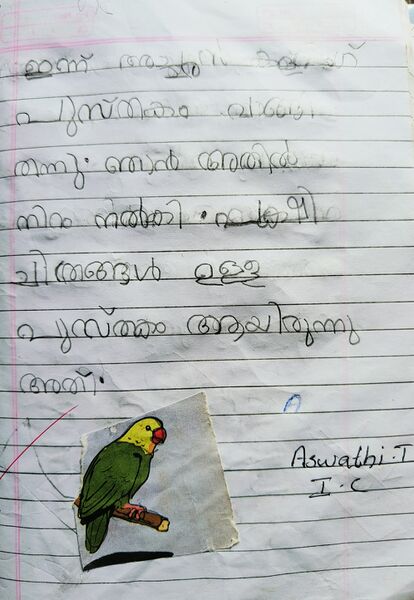 ഇന്ന് അച്ഛൻ കളറിംഗ്
പുസ്തകം വാങ്ങി
തന്നു. ഞാൻ അതിൽ
നിറം നൽകി.
ചിത്രങ്ങൾ ഉള്ള
പുസ്തകം ആയിരുന്നു
അത്.
Aswathi.T
I.C